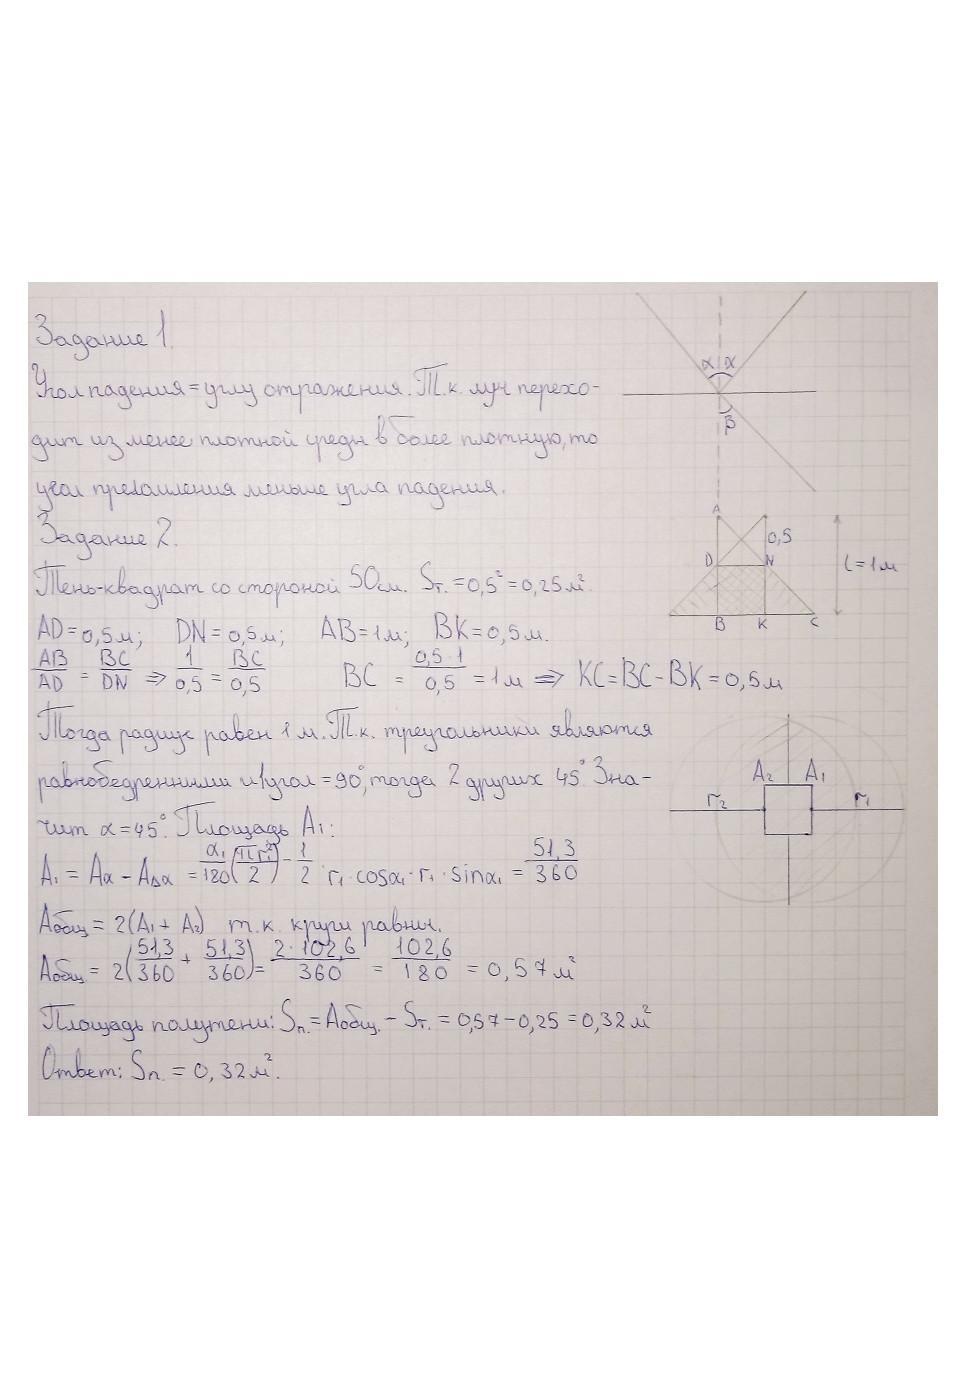 Задание 1.
Угол падения = углу отражения. Т.к. луч перехо-
дит из менее плотной среды в более плотную, то
угол преломления меньше угла падения.
α α
β
Задание 2.
Тень-квадрат со стороной 50см. Sт. = 0,5² = 0,25м².
AD = 0,5м; DN = 0,5м; AB = 1м; BK = 0,5м.
AB/AD = BC/DN ⇒ 1/0,5 = BC/0,5 BC = 0,5·1/0,5 = 1м ⇒ KC = BC - BK = 0,5м
A
0,5
D N
l = 1м
B K C
Тогда радиус равен 1м. Т.к. треугольники являются
равнобедренными и 1угол = 90°, тогда 2 других 45°. Зна-
чит α = 45°. Площадь A₁:
A₂ A₁
r₂ r₁
A₁ = Aα - A∆α = α₁/180 (πr₁²/2) - 1/2 · r₁ · cosα₁ · r₁ · sinα₁ = 51,3/360
Aобщ = 2(A₁ + A₂) т.к. круги равны.
Aобщ = 2(51,3/360 + 51,3/360) = 2·102,6/360 = 102,6/180 = 0,57м²
Площадь полутени: Sп. = Aобщ. - Sт. = 0,57 - 0,25 = 0,32м²
Ответ: Sп. = 0,32м².